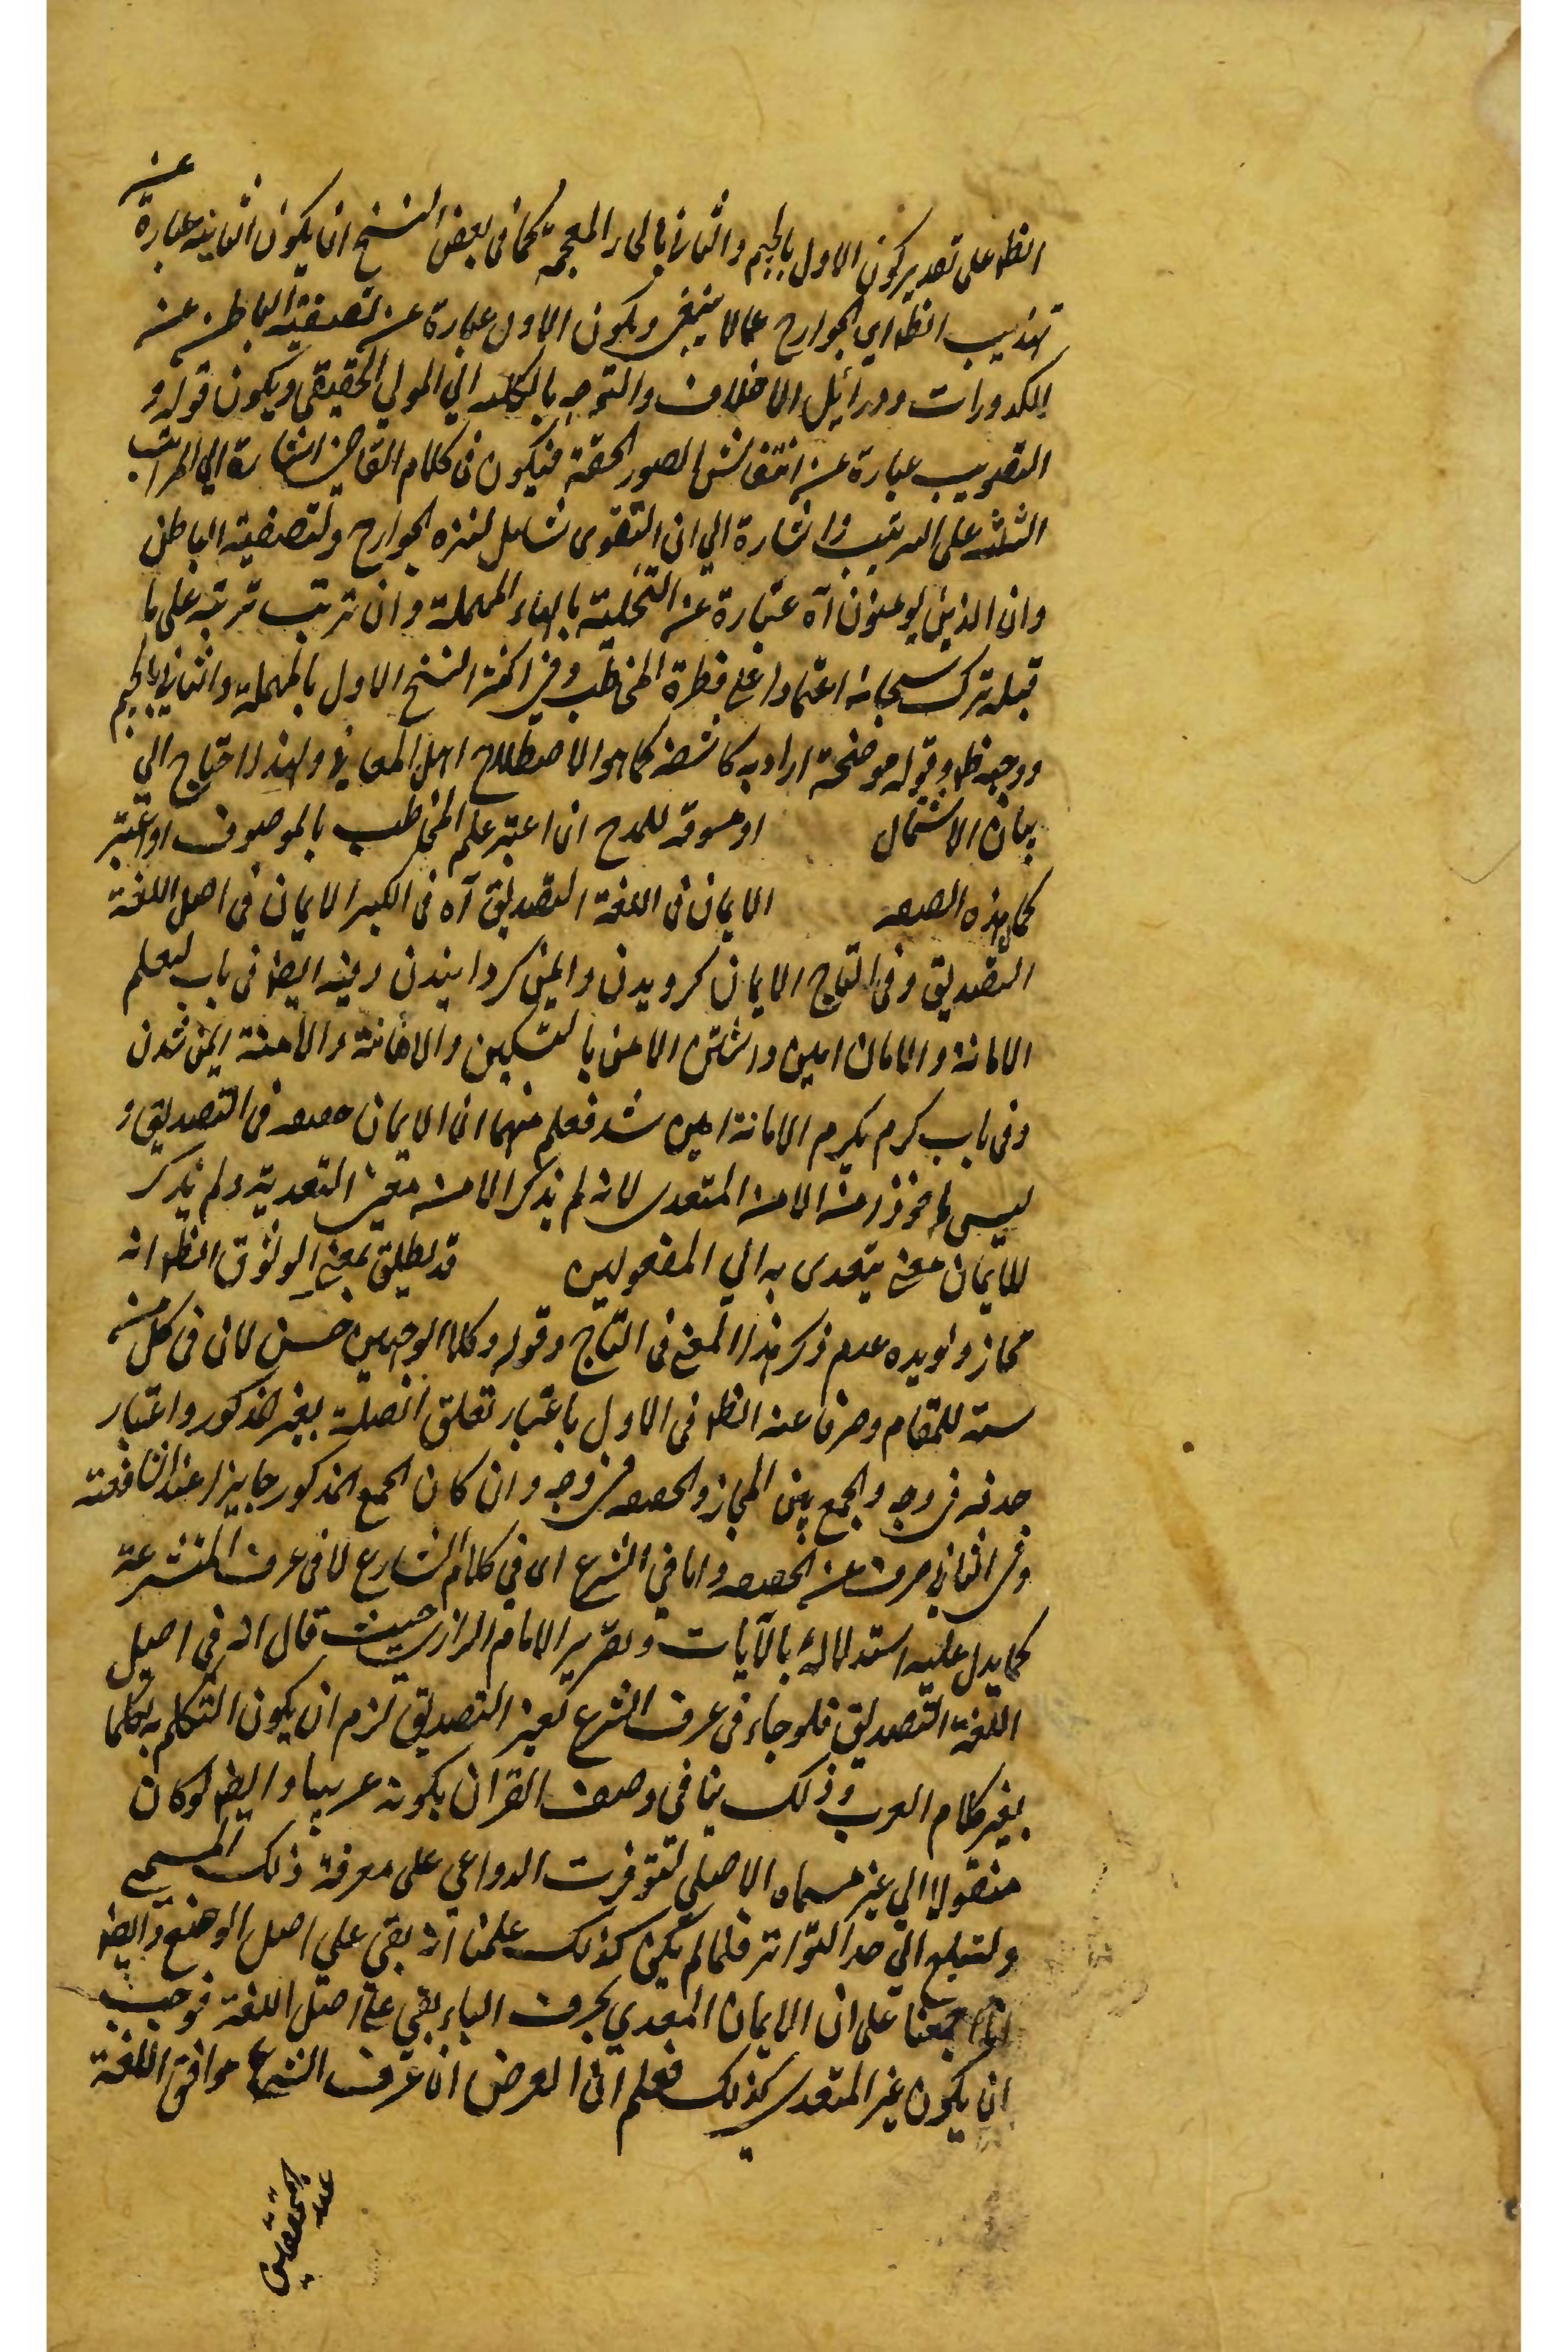 الظ على تقدير كون الاول بالجيم والثاني بالخاء المعجمة كما في بعض النسخ ان يكون الثانية عبارة عن
تهذيب الظ اي الجوارح عما لا ينبغي ويكون الاول عبارة عن تصفية الباطن عن
الكدورات ورذائل الاخلاق والتوجه بالكلية الي المولي الحقيقي ويكون قوله و
التصويب عبارة عن انتقاش الصور الحقة فيكون في كلام القاضي اشارة الي المراتب
الثلثة على الترتيب واشارة الي ان التقوى شامل لتنزه الجوارح ولتصفية الباطن
وان الذين يومنون آه عبارة عن التحلية بالحاء المهملة وان ترتب ترتبه على ما
قبله ترك سبحانه اعتمادا على فطرة المخاطب وفي اكثر النسخ الاول بالمهملة والثاني بالجيم
ووجهه ظ وقوله موضحة اراد به كاشفة كما هو الاصطلاح اهل المعاني ولهذا احتاج الي
بيان الاشتمال او مسوقة للمدح ان اعتبر علم المخاطب بالموصوف او اعتبر
كمال هذه الصفه الايمان في اللغة التصديق آه في الكبير الايمان في اصل اللغة
التصديق وفي التاج الايمان كرويدن وايمن كردانيدن وفيه ايضا في باب ليعلم
الامانة والامان امين داشتن الامن بالتسكين والامانة والامنة ايمن شدن
وفي باب كرم يكرم الامانة امين شد فعلم منهما ان الايمان حقيقه في التصديق و
ليس ماخوذ من الامن المتعدى لانه لم يذكر الامن معنى التعدية ولم يذكر
للايمان معنى يتعدى به الي المفعولين قد يطلق بمعنى الوثوق الظ انه
مجاز ويويده عدم ذكر هذا المعنى في التاج وقوله وكلا الوجهين حسن لان في كل منه
سبة للمقام وصرفا عنه الظ في الاول باعتبار تعلق الصلة بغير المذكور واعتبار
حذفه في وجه والجمع بين المجاز والحقيقه في وجه وان كان الجمع المذكور جايزا عند الشافعية
وفي الثاني صرف عن الحقيقه واما في الشرع اى في كلام الشارع لا في عرف المتشرعة
كما يدل عليه استدلاله بالآيات وتقرير الامام الرازي حيث قال انه في اصل
اللغة التصديق فلو جاء في عرف الشرع لغير التصديق لزم ان يكون المتكلم به متكلما
بغير كلام العرب وذلك ينافي وصف القران بكونه عربيا وايضا لو كان
منقولا الي غير مسماه الاصلي لتوفرت الدواعي على معرفة ذلك المسمى
ولتبلغ الي حد التواتر فلما لم يكن كذلك علمنا انه بقي على اصل الوضع وايضا
انا اجمعنا على ان الايمان المعدي بحرف الباء بقي على اصل اللغة فوجب
ان يكون غير المتعدي كذلك فعلم ان الغرض ان عرف الشرع موافق اللغة